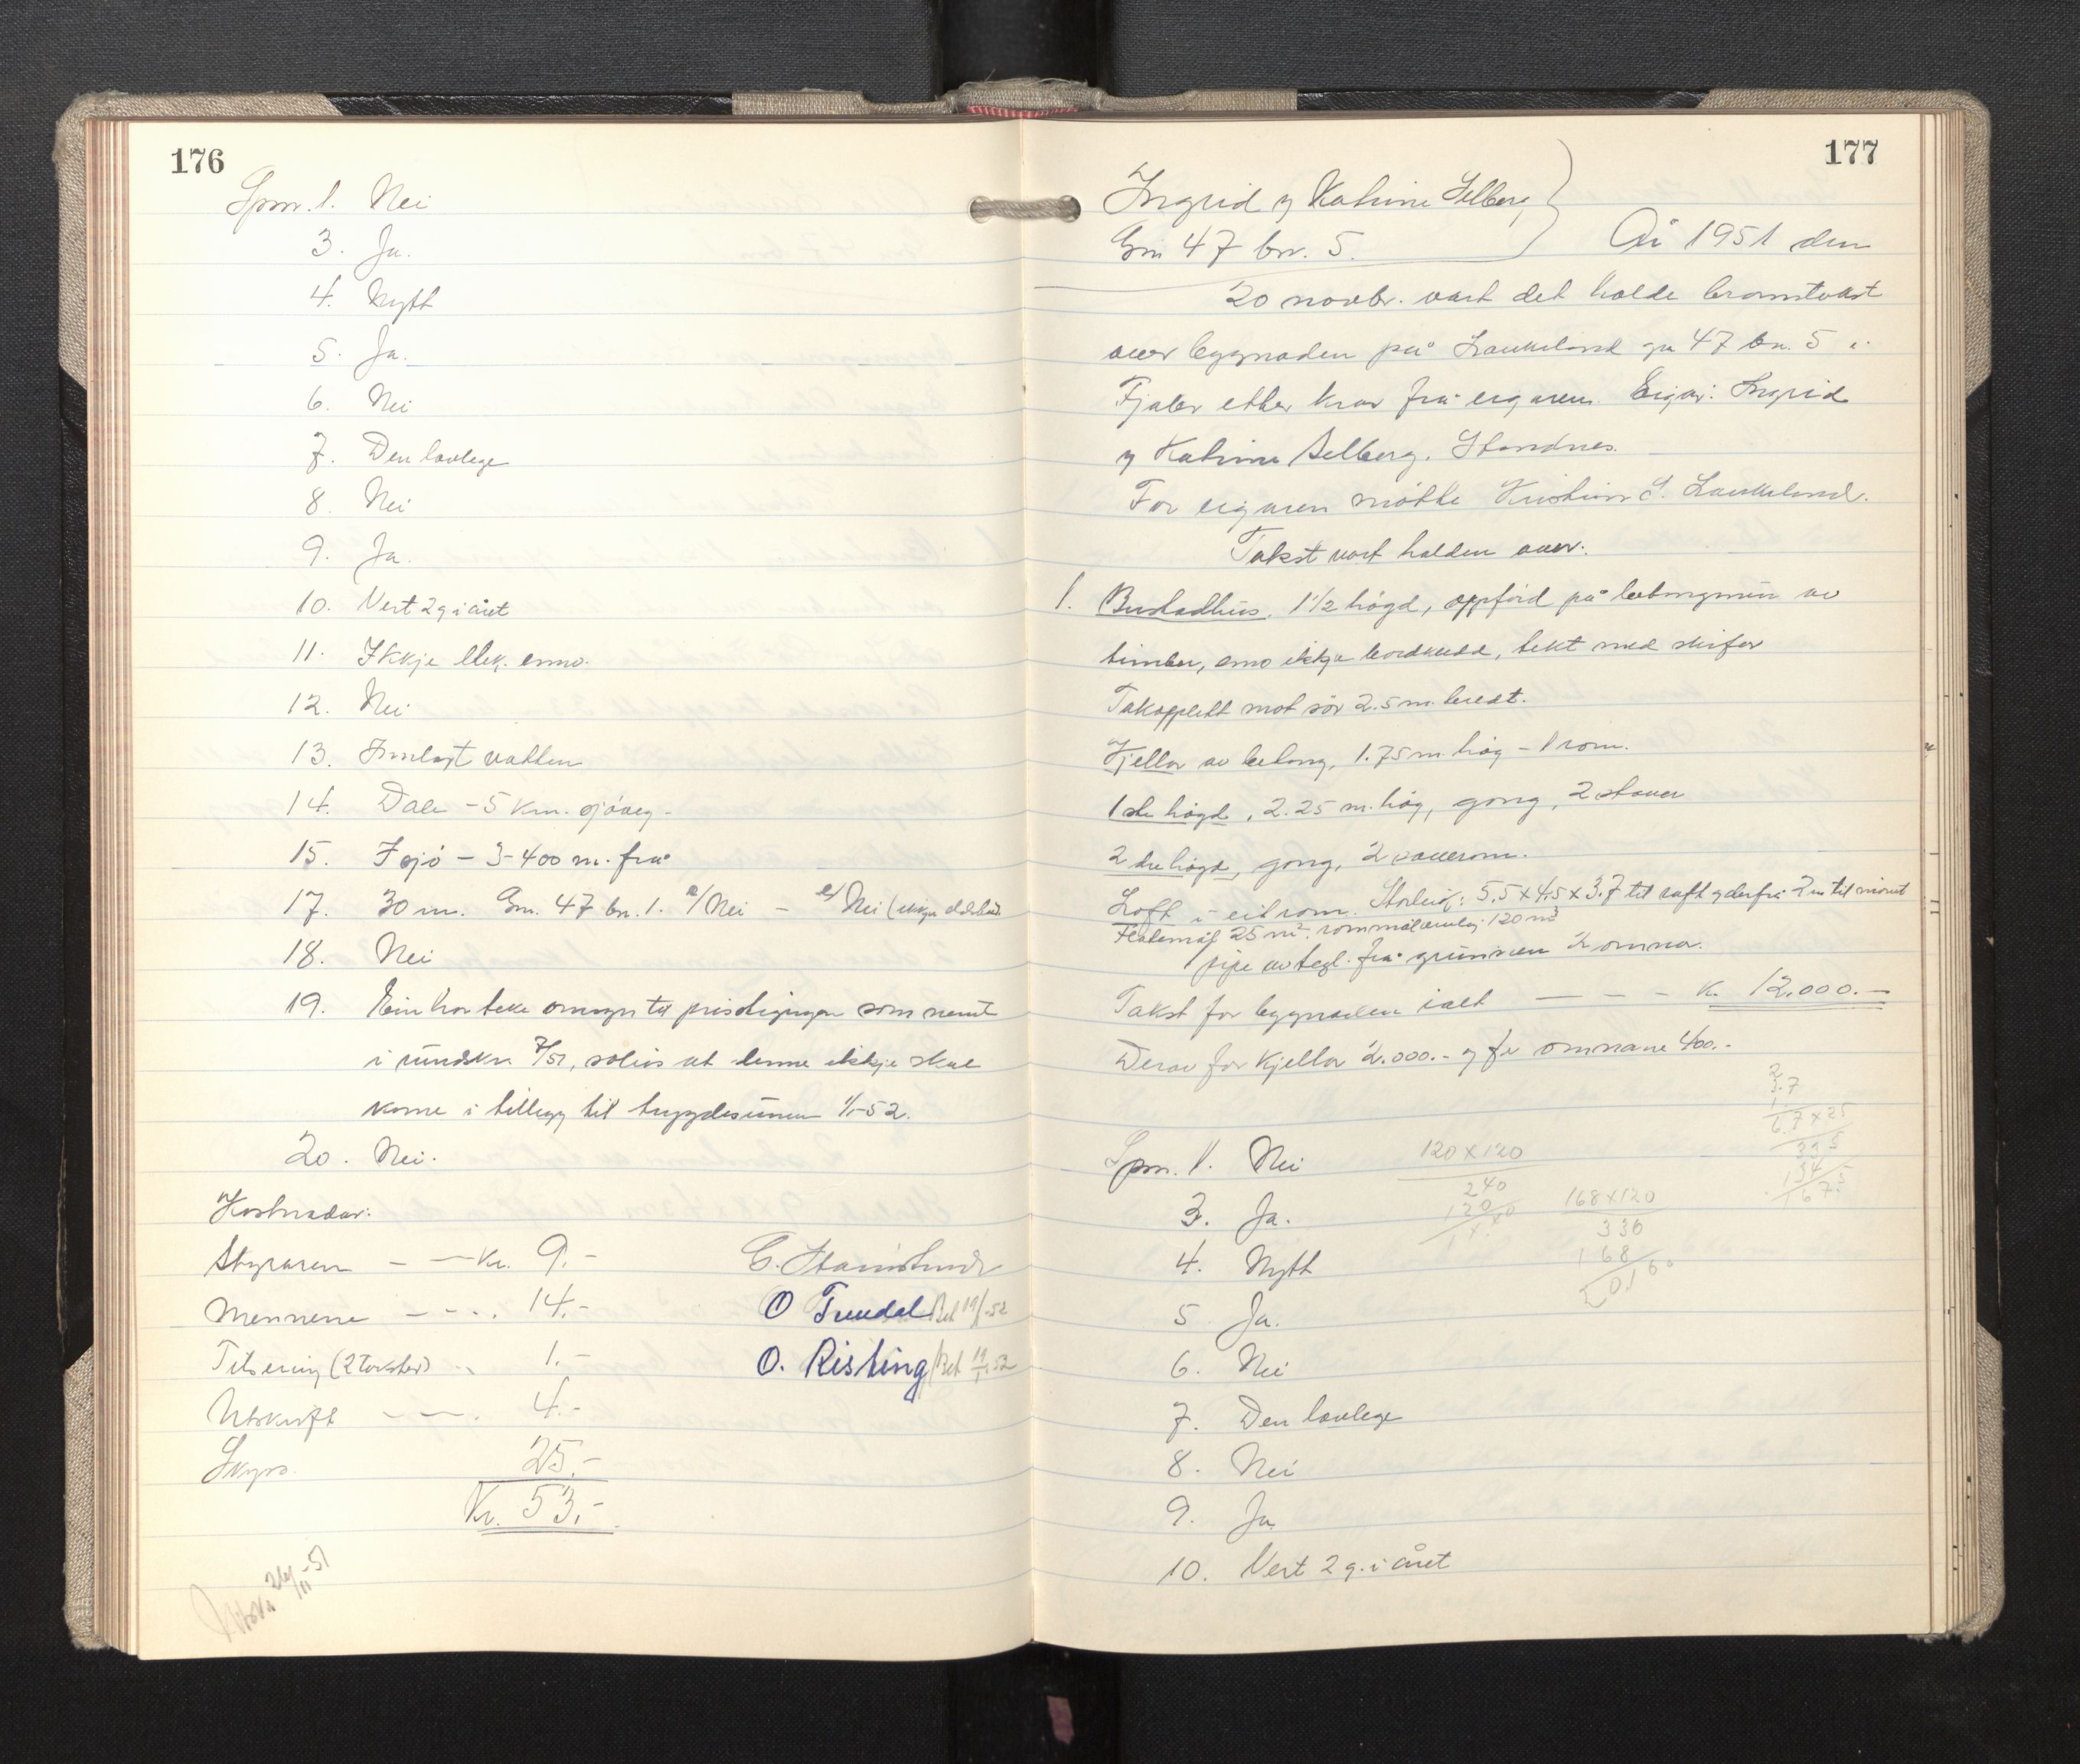 176
Spm. 1. Nei
3. Ja.
4. Nytt
5. Ja.
6. Nei
7. Den lovlege
8. Nei
9. Ja.
10. Vert 2 g i året
11. Ikkje elek. enno.
12. Nei
13. Innlagt vatten
14. Dale - 5 km. sjöveg -
15. I sjö - 3-400 m. frå
17. 30 m. Gn. 47 bn. 1. a/ Nei - e/ Nei (ikkje
18. Nei
19. Ein har teke omsyn til prisstiginga som nemnt
i rundskr. 7/51, soleis at denne ikkje skal
kome i tillegg til trygdesumen 1/1-52.
20. Nei.
Kostnader:
Styraren - - Kr. 9.-
Mennene - - - . 14.-
O Tundal Bet 19/1-52
Tilsening (2 takster) 1.-
O. Risting Bet 19/1-52
Utskrift - - . 4.-
Skyss. 25.-
Kr. 53.-
26/11-51
177
Ingrid og Katrine Selberg
Gn 47 br. 5. År 1951 den
20 novbr. vart det halde branntakst
over bygnaden på Laukeland gn 47 bn. 5 i
Fjaler etter krav frå eigaren. Eigar: Ingrid
og Katrine Selberg. Standnes.
For eigaren møtte Kristine S. Laukeland.
Takst vart halden over:
1. Bustadhus, 1 1/2 högd, oppförd på betongmur av
timber, enno ikkje bordkledd, tekt med skifer
Takopplett mot sör 2.5 m. bredt.
Kjellar av betong, 1.75 m. høg - 1 rom.
1ste högd, 2.25 m. høg, gong, 2 stover
2dre högd, gong, 2 soverom.
Loft i eit rom. Storleik: 5.5 x 4.5 x 3.7 til raft og derfrå 2 m til mönet
Flatemål 25 m². rommål 120 m³
1 pipe av tegl. frå grunnen 2 omnar.
Takst for bygnaden i alt - - - - kr. 12.000.-
Derav for kjellar 2.000.- og for omnane 400.-
2
3.7
1
6.7 x 25
335
134
167.5
Spm. 1. Nei
120 x 120
240
120
3. Ja.
168 x 120
336
168
20160
4. Nytt
5. Ja.
6. Nei
7. Den lovlege
8. Nei
9. Ja
10. Vert 2 g. i året